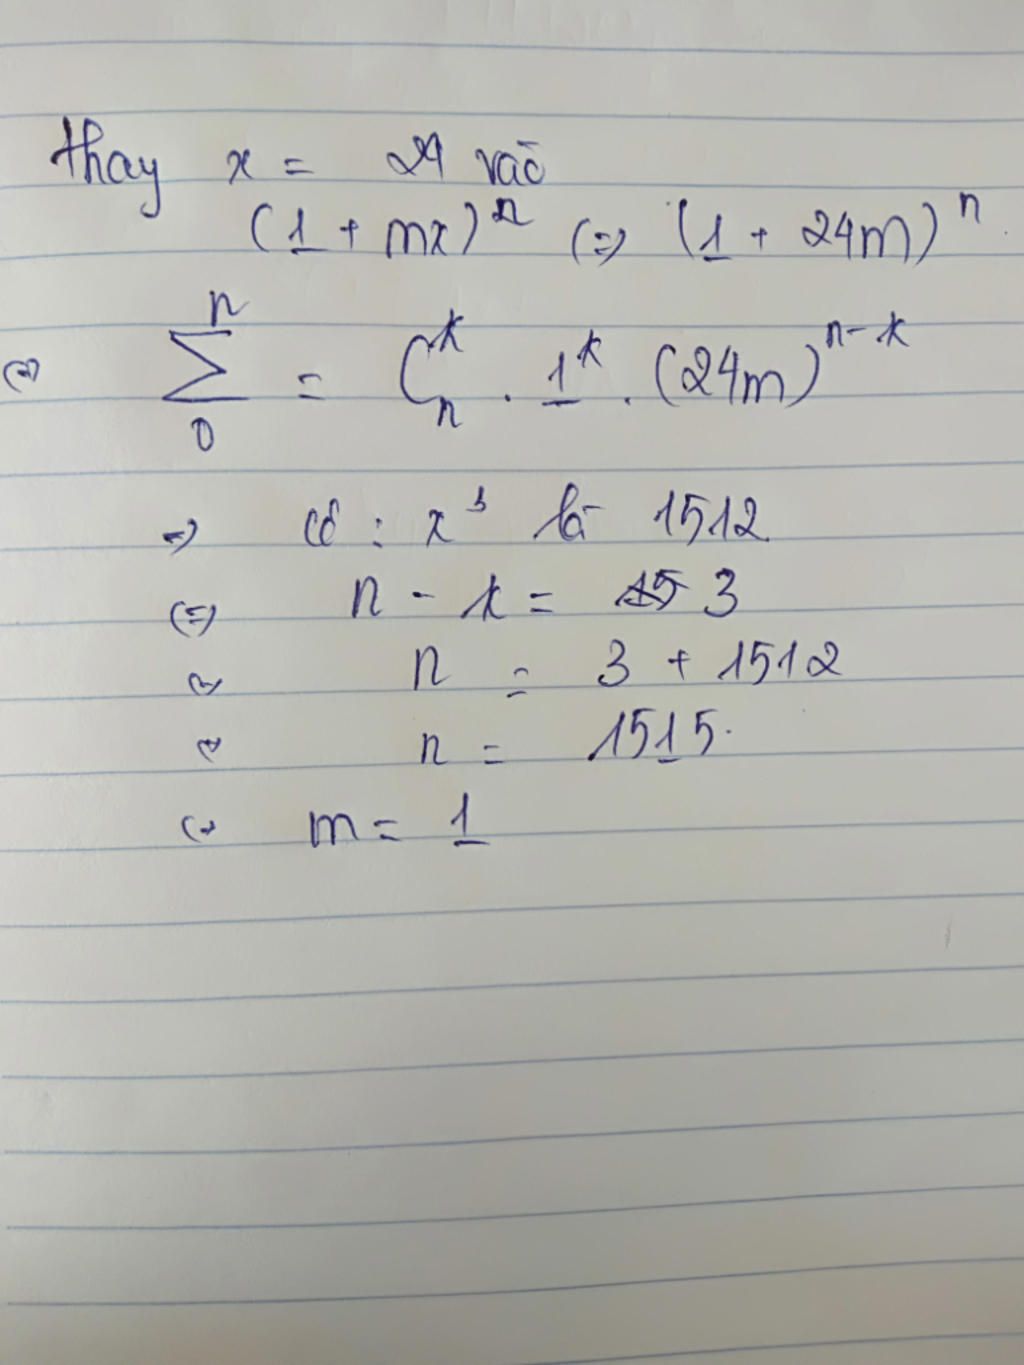 thay x = 24 vào
(1 + mx)^n (=) (1 + 24m)^n
(=) \sum_{0}^{n} = C_n^k . 1^k . (24m)^{n-k}
=) có : x^3 là 1512
(=) n - k = 3
(=) n = 3 + 1512
(=) n = 1515.
(=) m = 1